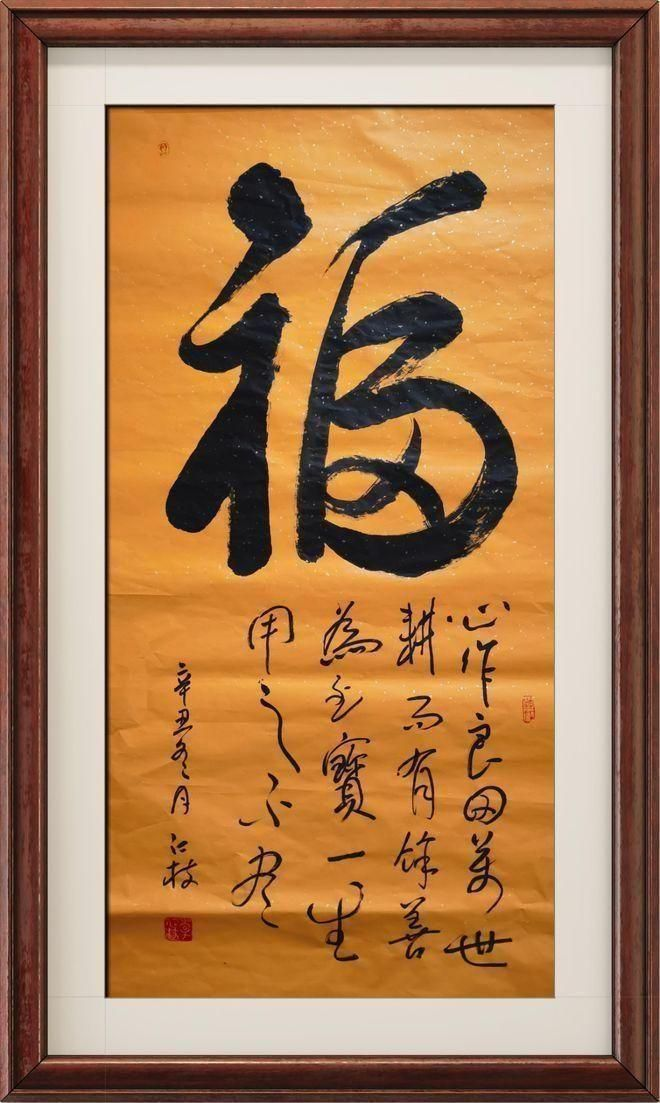 福
心作良田萬世
耕而有餘善
為至寶一生
用之不尽
辛丑冬月 枝